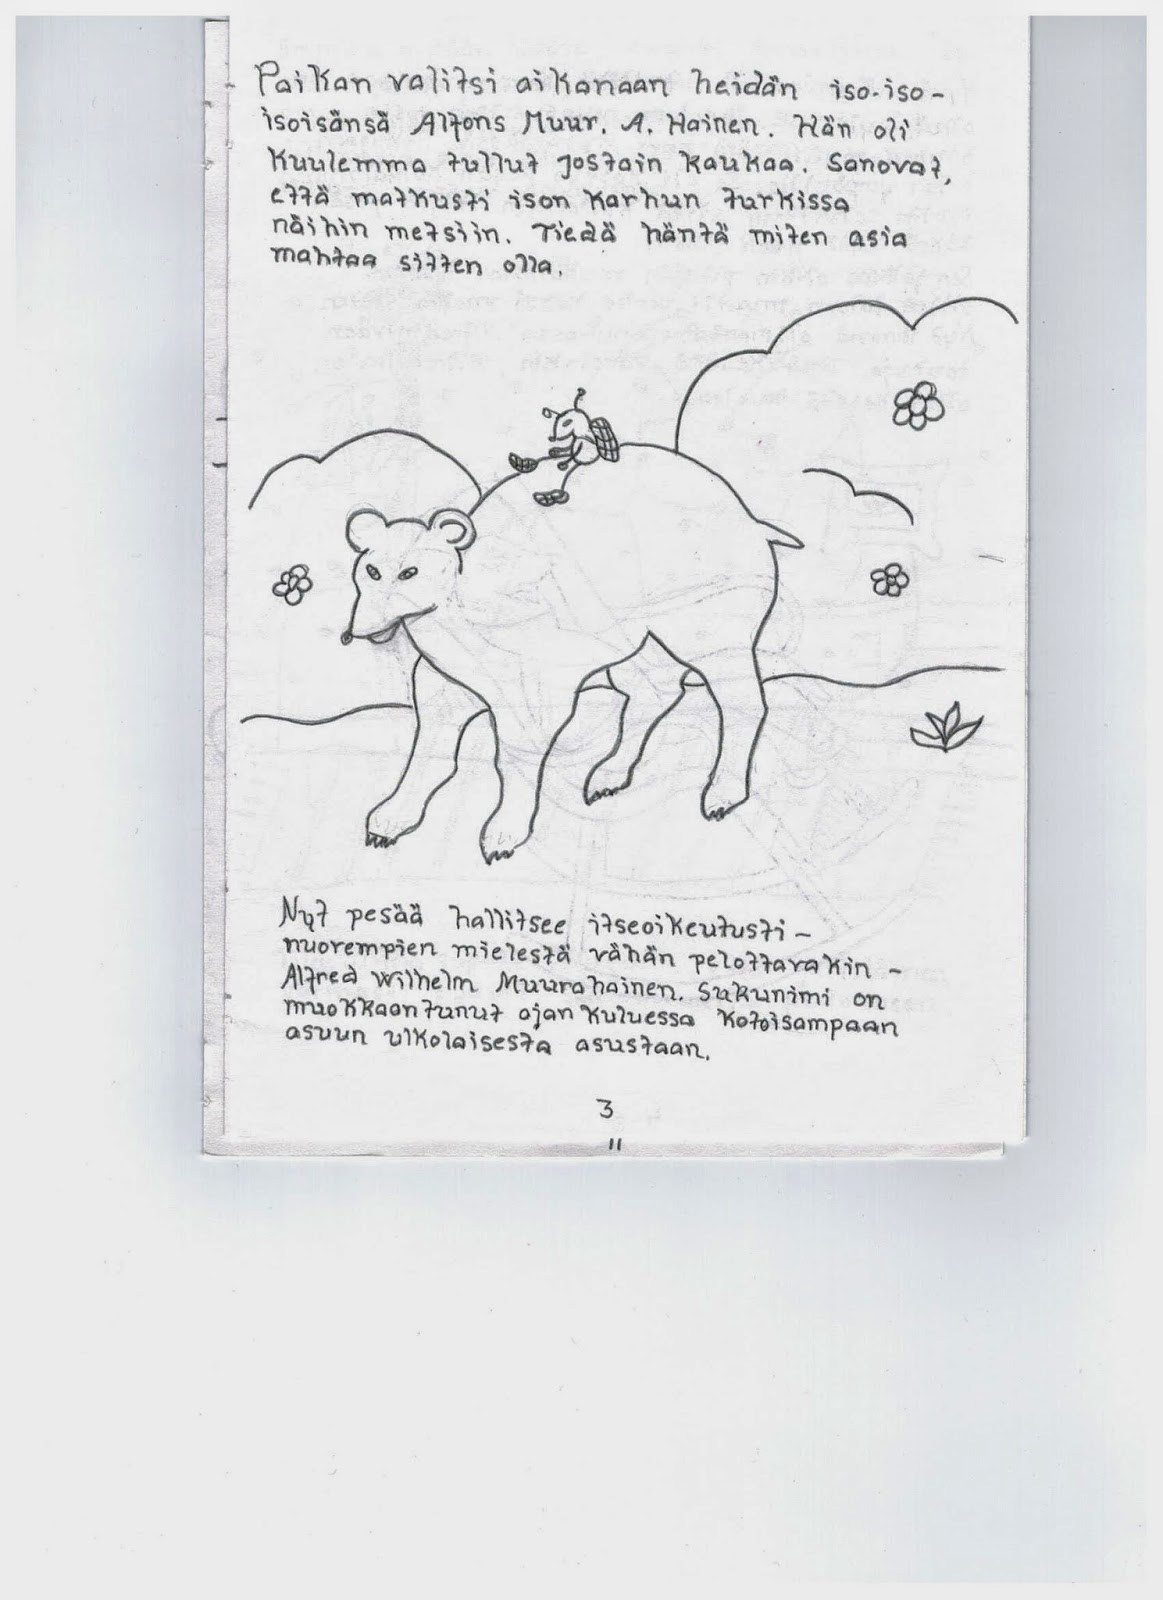 Paikan valitsi aikanaan heidän iso-iso-
isoisänsä Alfons Muur. A. Hainen. Hän oli
kuulemma tullut jostain kaukaa. Sanovat,
että matkusti ison karhun turkissa
näihin metsiin. Tiedä häntä miten asia
mahtaa sitten olla.
Nyt pesää hallitsee itseoikeutusti -
nuorempien mielestä vähän pelottavakin -
Alfred Wilhelm Muurahainen. Sukunimi on
muokkaantunut ajan kuluessa kotoisampaan
asuun ulkolaisesta asustaan.
3